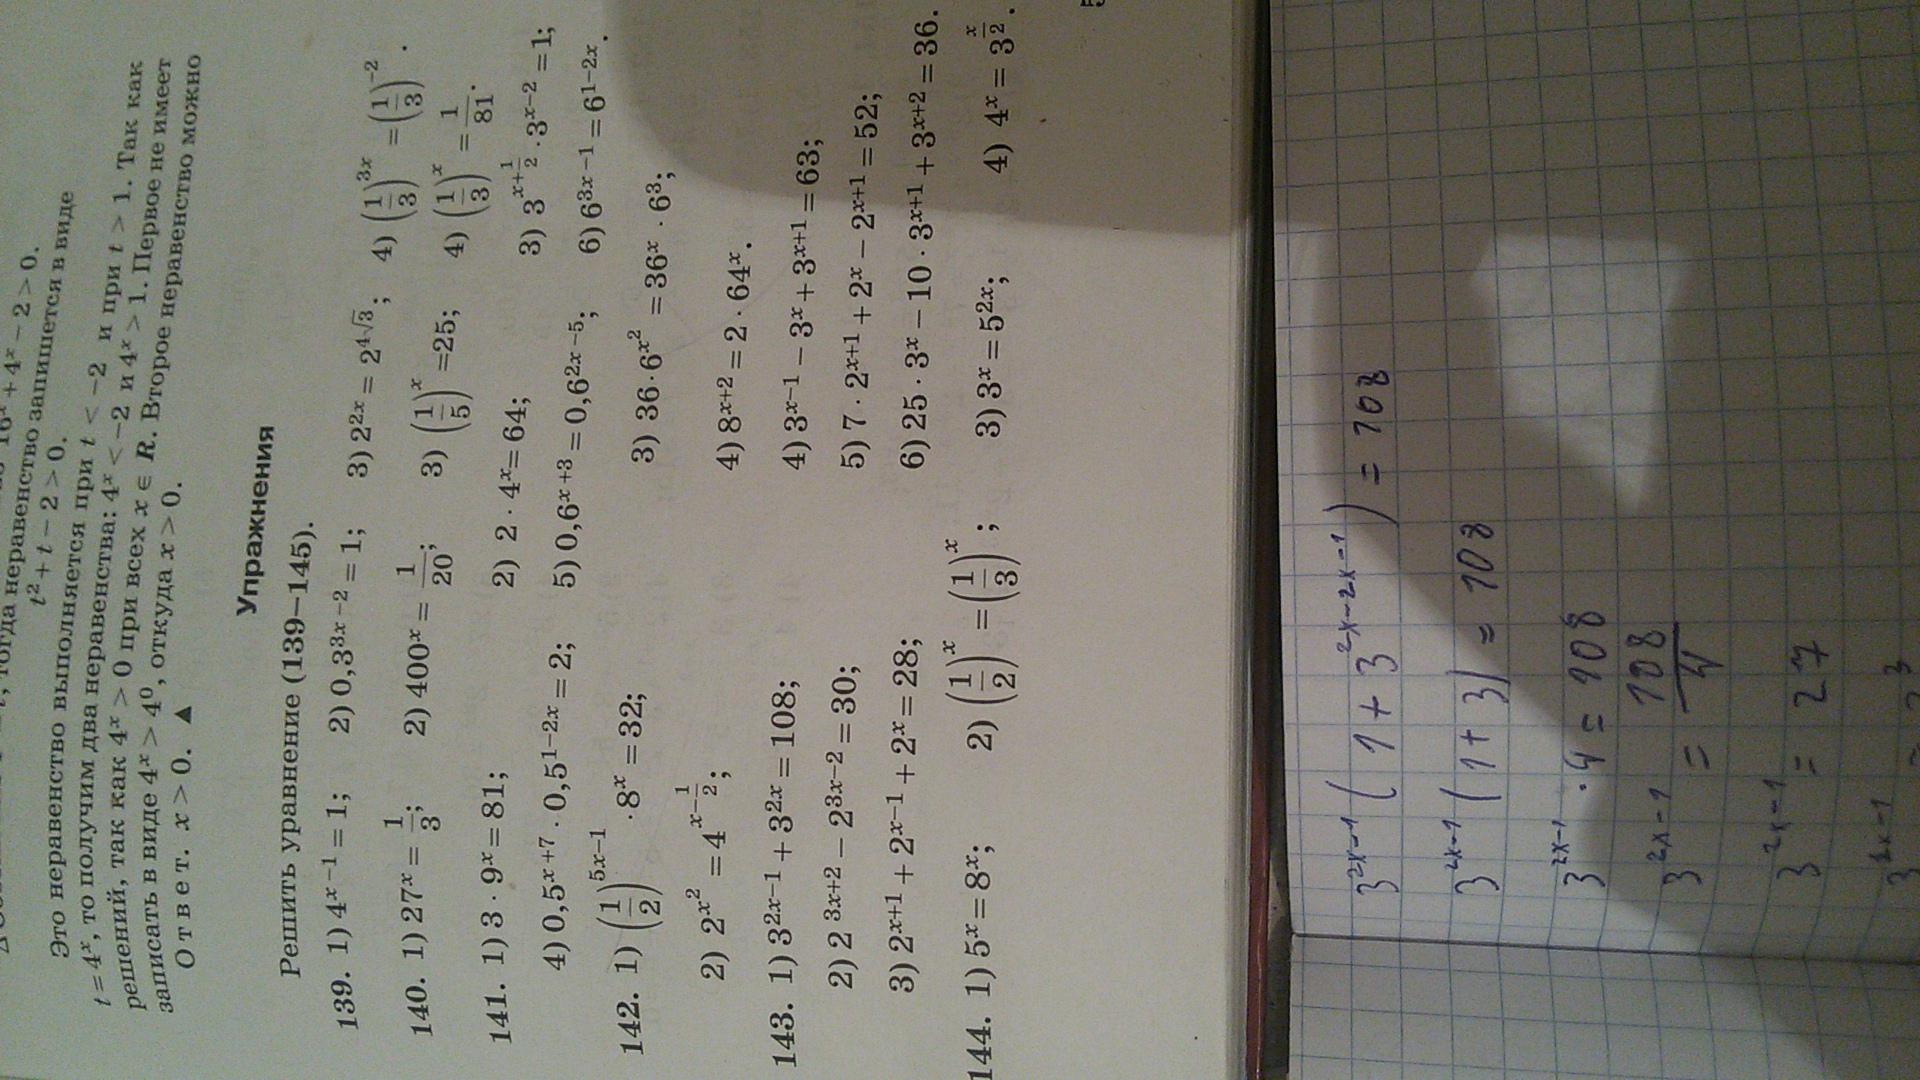 16ˣ + 4ˣ − 2 > 0.
тогда неравенство запишется в виде
t² + t − 2 > 0.
Это неравенство выполняется при t < −2 и при t > 1. Так как
t = 4ˣ, то получим два неравенства: 4ˣ < −2 и 4ˣ > 1. Первое не имеет
решений, так как 4ˣ > 0 при всех x ∈ R. Второе неравенство можно
записать в виде 4ˣ > 4⁰, откуда x > 0.
Ответ. x > 0. ▲
Упражнения
Решить уравнение (139—145).
139. 1) 4^{x−1} = 1; 2) 0,3^{3x−2} = 1; 3) 2^{2x} = 2^{4√3}; 4) (1/3)^{3x} = (1/3)^{−2}.
140. 1) 27ˣ = 1/3; 2) 400ˣ = 1/20; 3) (1/5)ˣ = 25; 4) (1/3)ˣ = 1/81.
141. 1) 3 · 9ˣ = 81; 2) 2 · 4ˣ = 64; 3) 3^{x+1/2} · 3^{x−2} = 1;
4) 0,5^{x+7} · 0,5^{1−2x} = 2; 5) 0,6^{x+3} = 0,6^{2x−5}; 6) 6^{3x−1} = 6^{1−2x}.
142. 1) (1/2)^{5x−1} · 8ˣ = 32; 3) 36 · 6^{x²} = 36ˣ · 6³;
2) 2^{x²} = 4^{x−1/2}; 4) 8^{x+2} = 2 · 64ˣ.
143. 1) 3^{2x−1} + 3^{2x} = 108; 4) 3^{x−1} − 3ˣ + 3^{x+1} = 63;
2) 2^{3x+2} − 2^{3x−2} = 30; 5) 7 · 2^{x+1} + 2ˣ − 2^{x+1} = 52;
3) 2^{x+1} + 2^{x−1} + 2ˣ = 28; 6) 25 · 3ˣ − 10 · 3^{x+1} + 3^{x+2} = 36.
144. 1) 5ˣ = 8ˣ; 2) (1/2)ˣ = (1/3)ˣ; 3) 3ˣ = 5^{2x}; 4) 4ˣ = 3^{x/2}.
3^{2x−1} (1 + 3^{2x−2x−1}) = 108
3^{2x−1} (1 + 3) = 108
3^{2x−1} · 4 = 108
3^{2x−1} = 108/4
3^{2x−1} = 27
3^{2x−1} = 3³